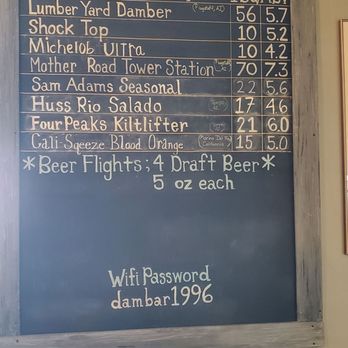 Lumber Yard Damber 56 5.7
Shock Top 10 5.2
Michelob Ultra 10 4.2
Mother Road Tower Station 70 7.3
Sam Adams Seasonal 22 5.6
Huss Rio Salado 17 4.6
Four Peaks Kiltlifter 21 6.0
Cali-Sqeeze Blood Orange 15 5.0
*Beer Flights; 4 Draft Beer*
5 oz each
Wifi Password
dambar1996